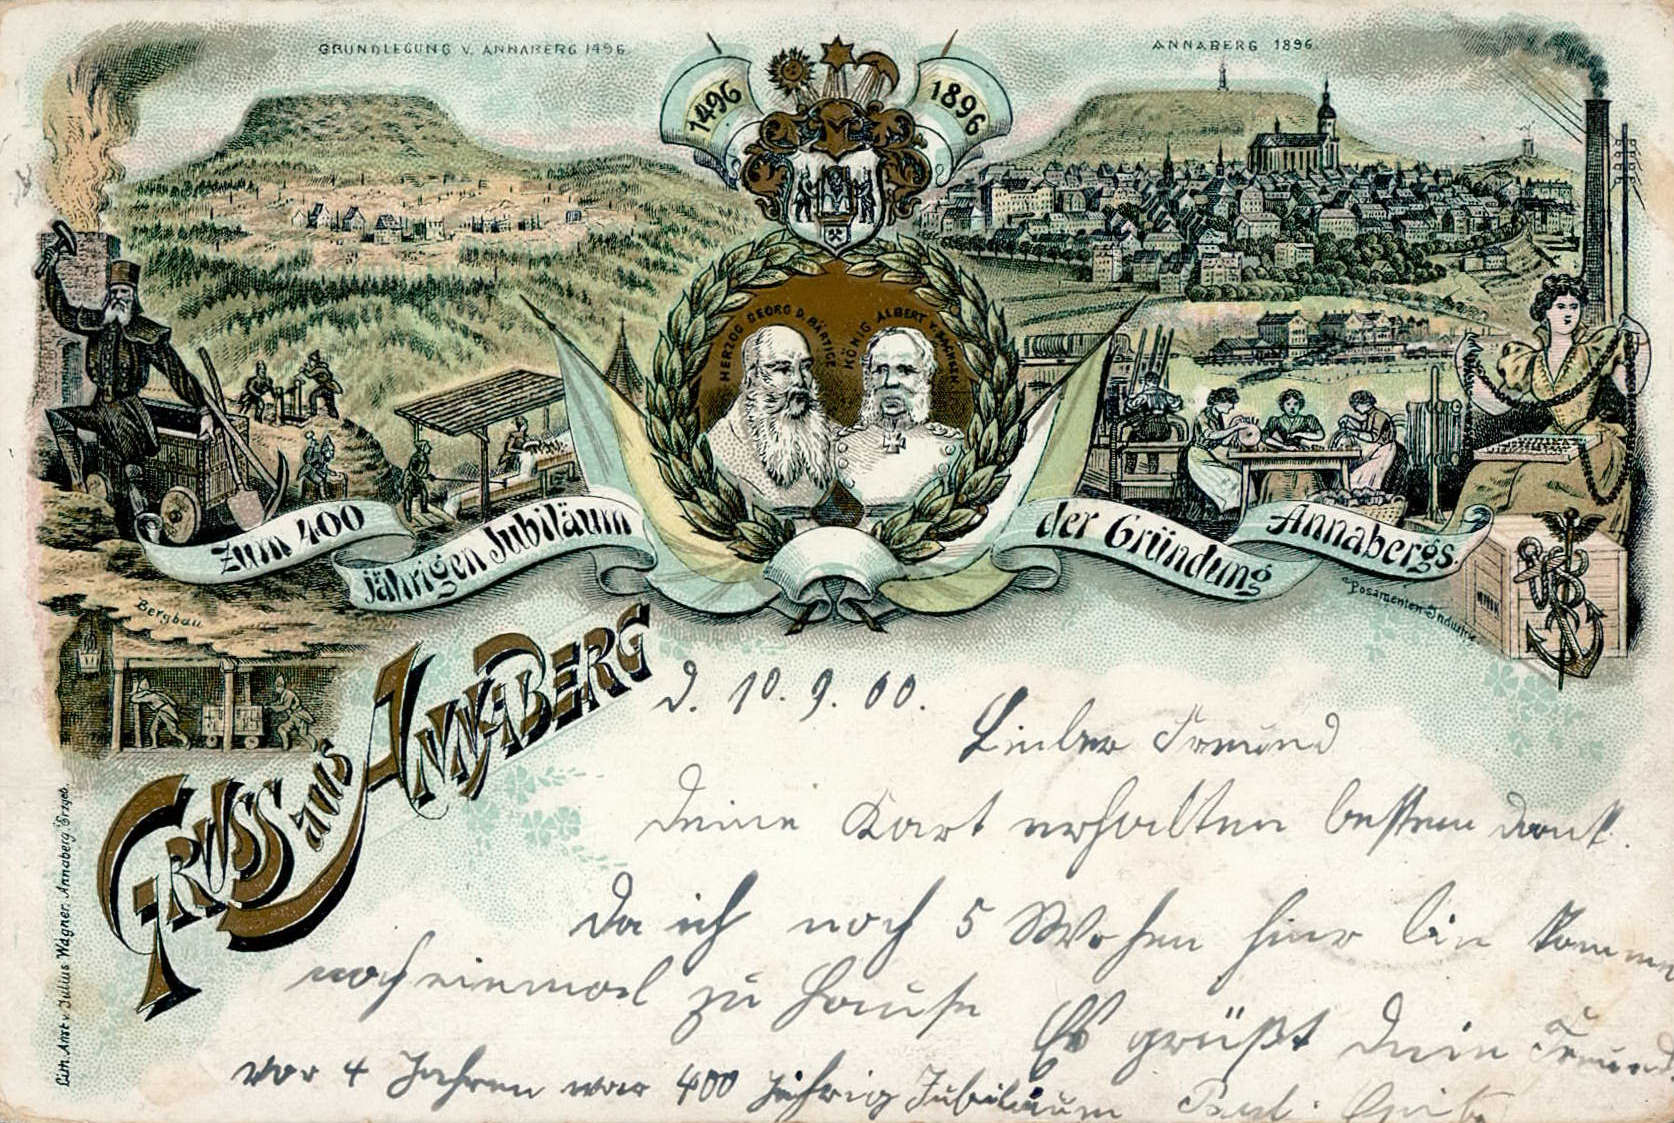 GRUNDLEGUNG V. ANNABERG 1496.
ANNABERG 1896.
1496
1896
HERZOG GEORG D. BÄRTIGE
KÖNIG ALBERT V. SACHSEN.
Zum 400
jährigen Jubiläum
der Gründung
Annabergs.
Bergbau
Posamenten-Industrie
GRUSS aus ANNABERG
Lith. Anst v. Julius Wagner, Annaberg Erzgeb.
d. 10. 9. 00.
Lieber Freund
Deine Kart erhalten besten Dank.
Da ich noch 5 Wochen hier bin komme
noch einmal zu Hause
Es grüßt Dein Freund
vor 4 Jahren war 400 jährig Jubiläum